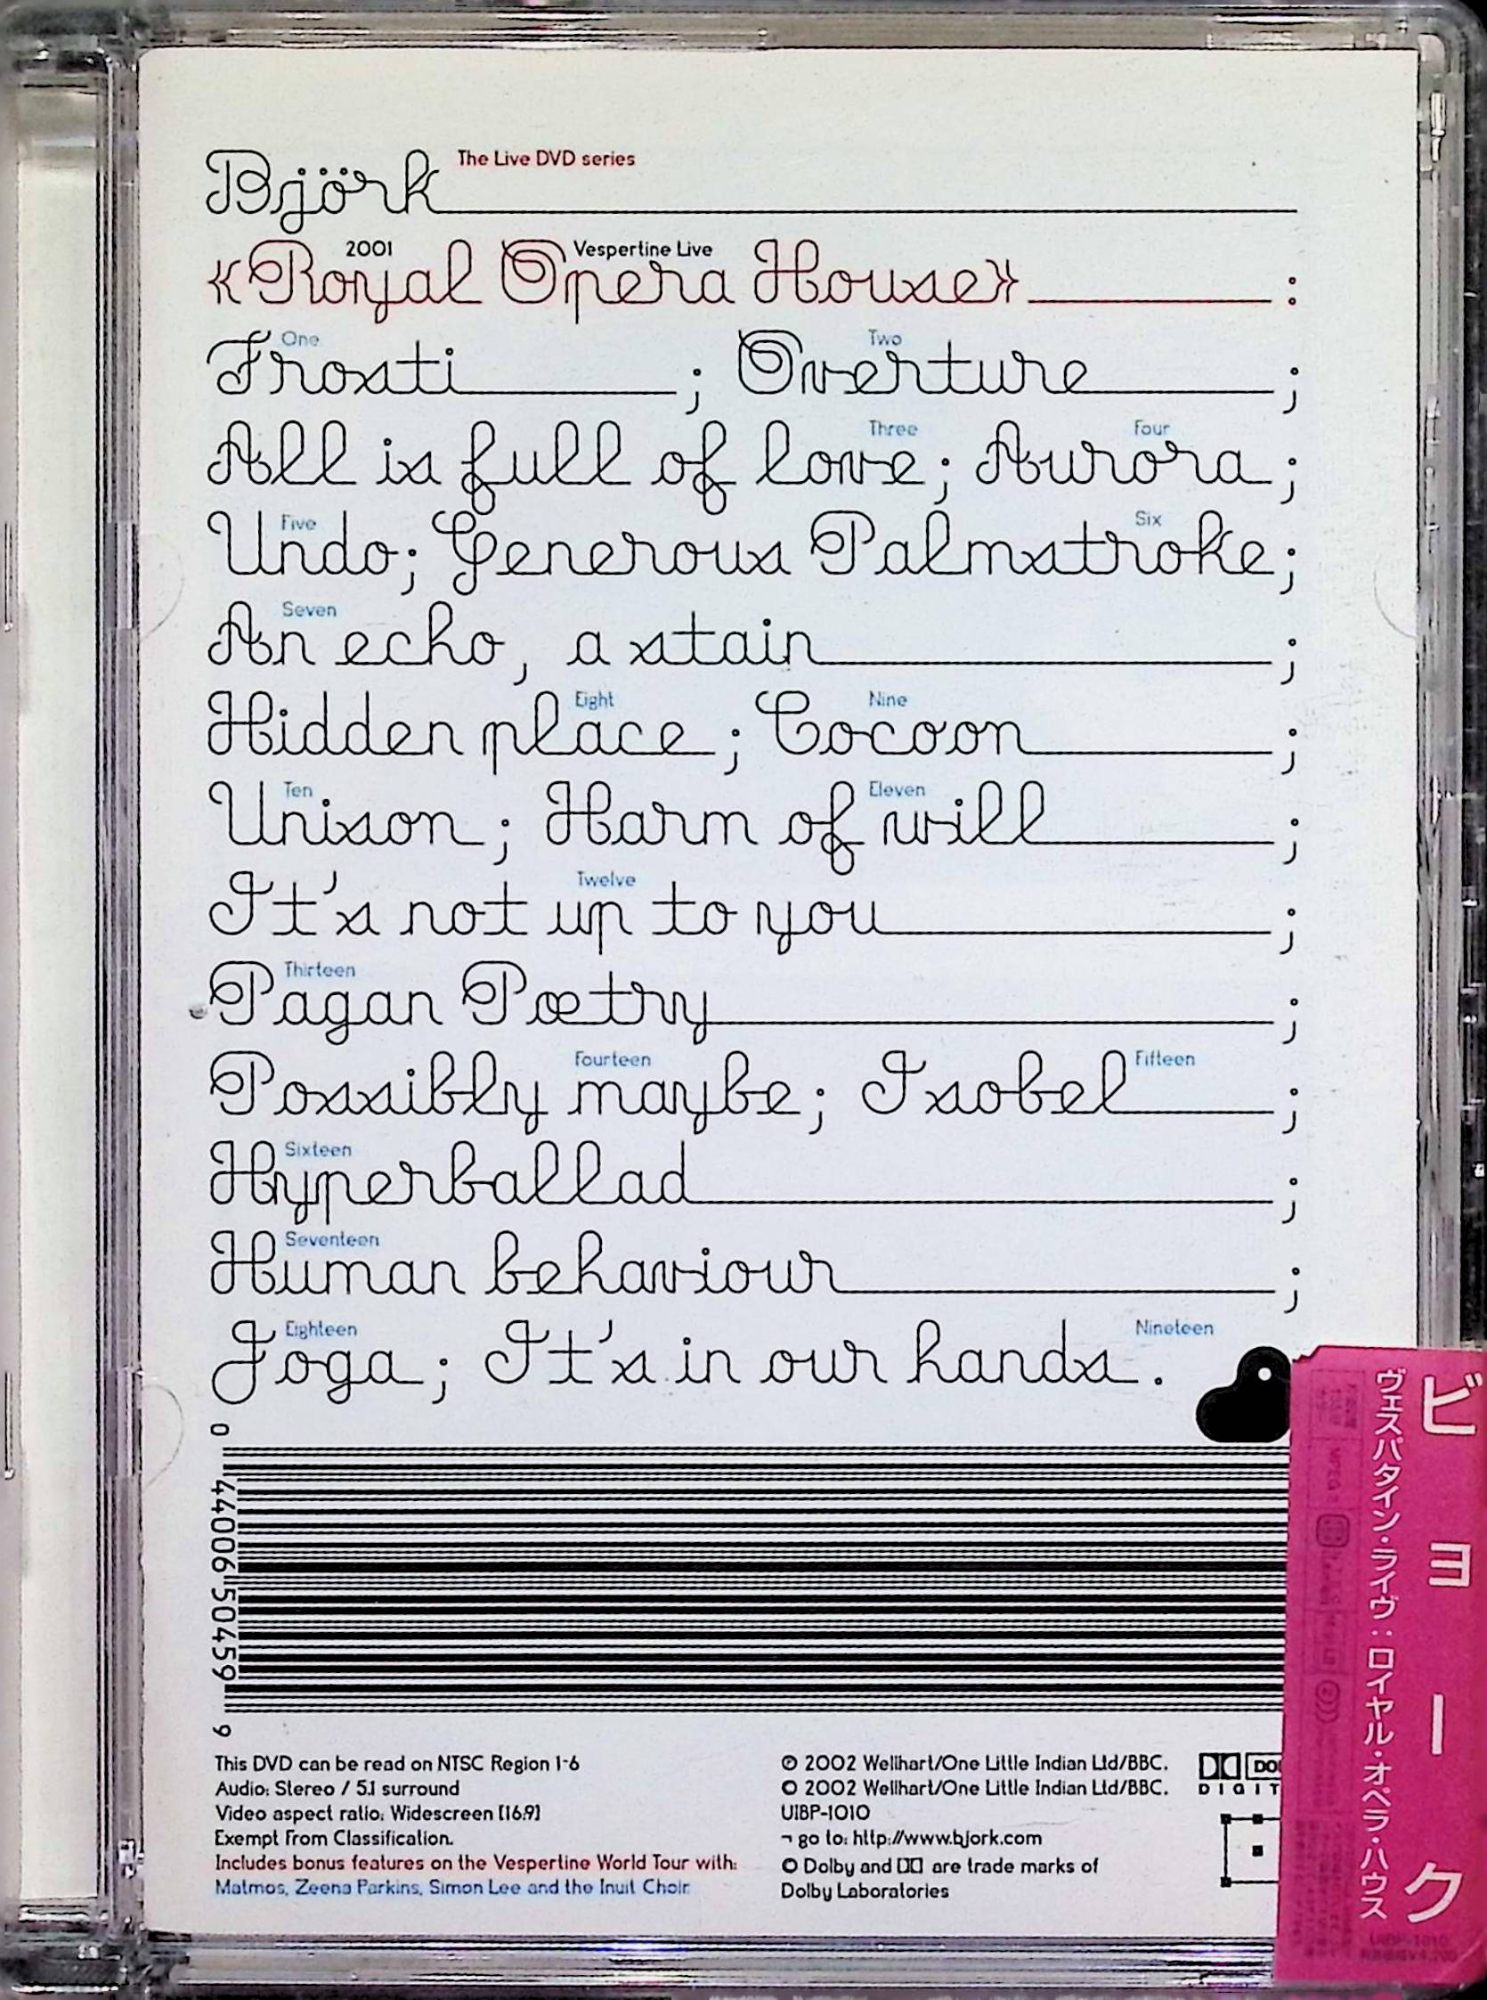 Björk The Live DVD series
2001 Vespertine Live
«Royal Opera House» :
One Two
Frosti ; Overture ;
Three Four
All is full of love; Aurora;
Five Six
Undo; Generous Palmstroke;
Seven
An echo, a stain ;
Eight Nine
Hidden place; Cocoon ;
Ten Eleven
Unison; Harm of will ;
Twelve
It's not up to you ;
Thirteen
Pagan Poetry ;
Fourteen Fifteen
Possibly maybe; Isobel ;
Sixteen
Hyperballad ;
Seventeen
Human behaviour ;
Eighteen Nineteen
Joga; It's in our hands.
0 44006 50459 9
This DVD can be read on NTSC Region 1-6
Audio: Stereo / 5.1 surround
Video aspect ratio: Widescreen [16:9]
Exempt From Classification.
Includes bonus features on the Vespertine World Tour with:
Matmos, Zeena Parkins, Simon Lee and the Inuit Choir.
℗ 2002 Wellhart/One Little Indian Ltd/BBC.
© 2002 Wellhart/One Little Indian Ltd/BBC.
UIBP-1010
¬ go to: http://www.bjork.com
© Dolby and DD are trade marks of
Dolby Laboratories
DO
DIGIT
ビョーク
ヴェスパタイン・ライヴ::ロイヤル・オペラ・ハウス
UIBP-1010